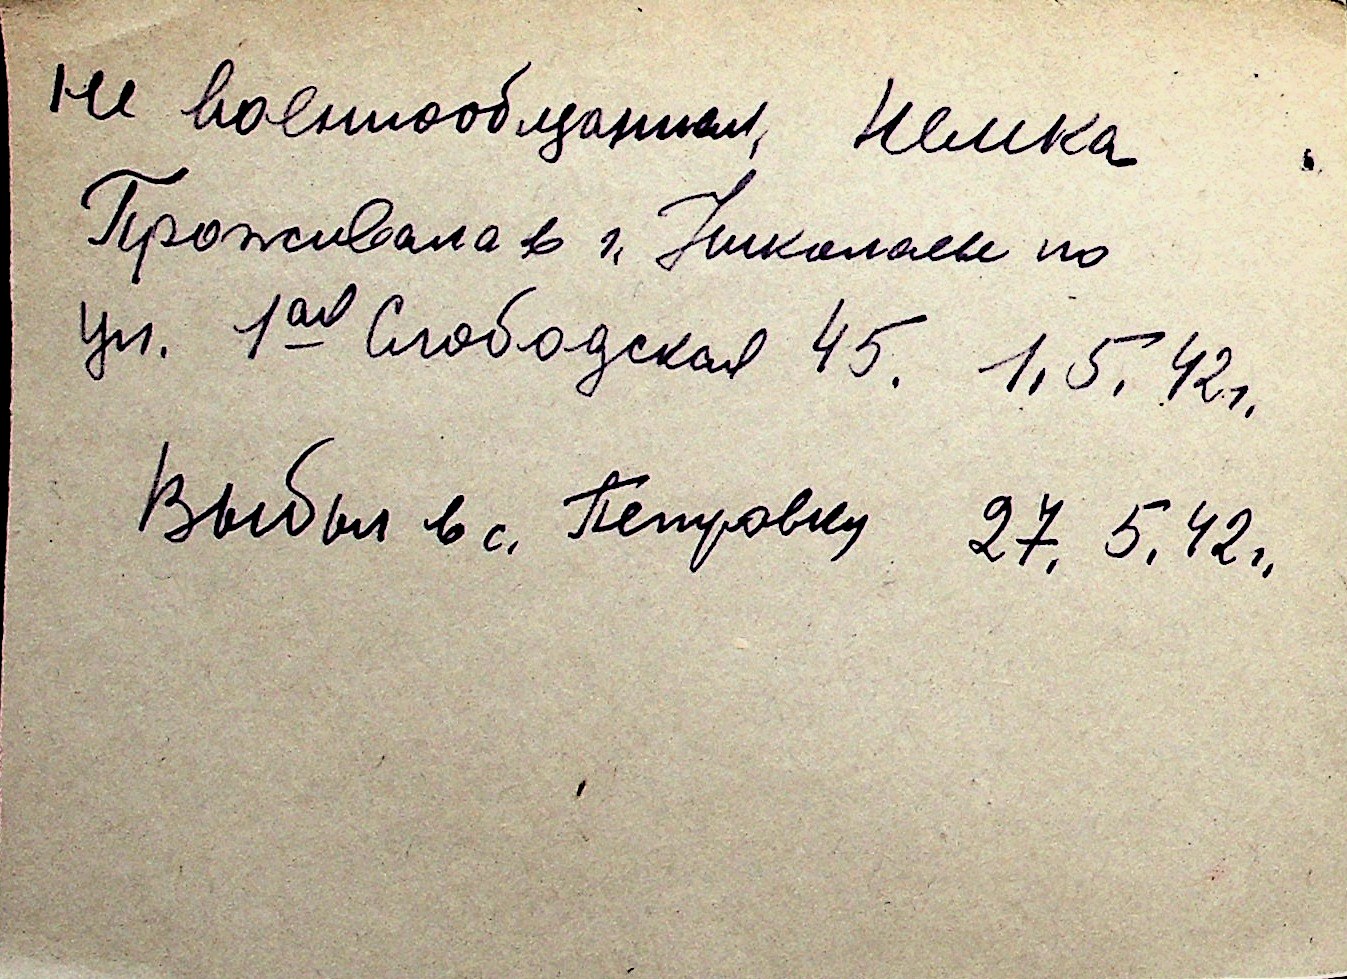 Не военнообщанная, Немка
Проживала в г. Николаеве по
ул. 1ая Слободская 45. 1.5.42г.
Выбыл в с. Петровку 27.5.42г.